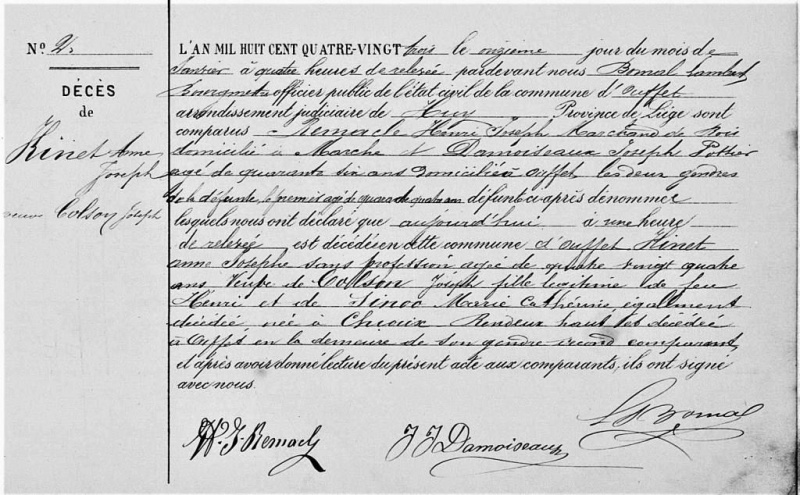 N.º 2.
DÉCÈS
de
Kinet Anne
Joseph
veuve Colson Joseph
L'AN MIL HUIT CENT QUATRE-VINGT trois le onzième jour du mois de
Janvier à quatre heures de relevée pardevant nous Bomal Lambert
Bourgmestre officier public de l'état civil de la commune d'Ouffet
arrondissement judiciaire de Huy Province de Liège sont
comparus Remacle Henri Joseph Marchand de bois
domicilié à Marche et Damoiseaux Joseph Pottier
agé de quarante six ans domicilié à Ouffet, les deux gendres
de la défunte, le premier agé de quarante quatre ans défunt ci-après dénommer
lesquels nous ont déclaré que aujourd'hui à une heure
de relevée est décédé en cette commune d'Ouffet Kinet
anne Josephe sans profession agée de quatre vingt quatre
ans Veuve de Colson Joseph fille légitime de feu
Henri et de Marie Catherine également
décédée née à Rendeux haut et décédée
à Ouffet en la demeure de son gendre second comparant,
et après avoir donné lecture du présent acte aux comparants, ils ont signé
avec nous.
H. J. Remacle J J Damoiseaux L J Bomal